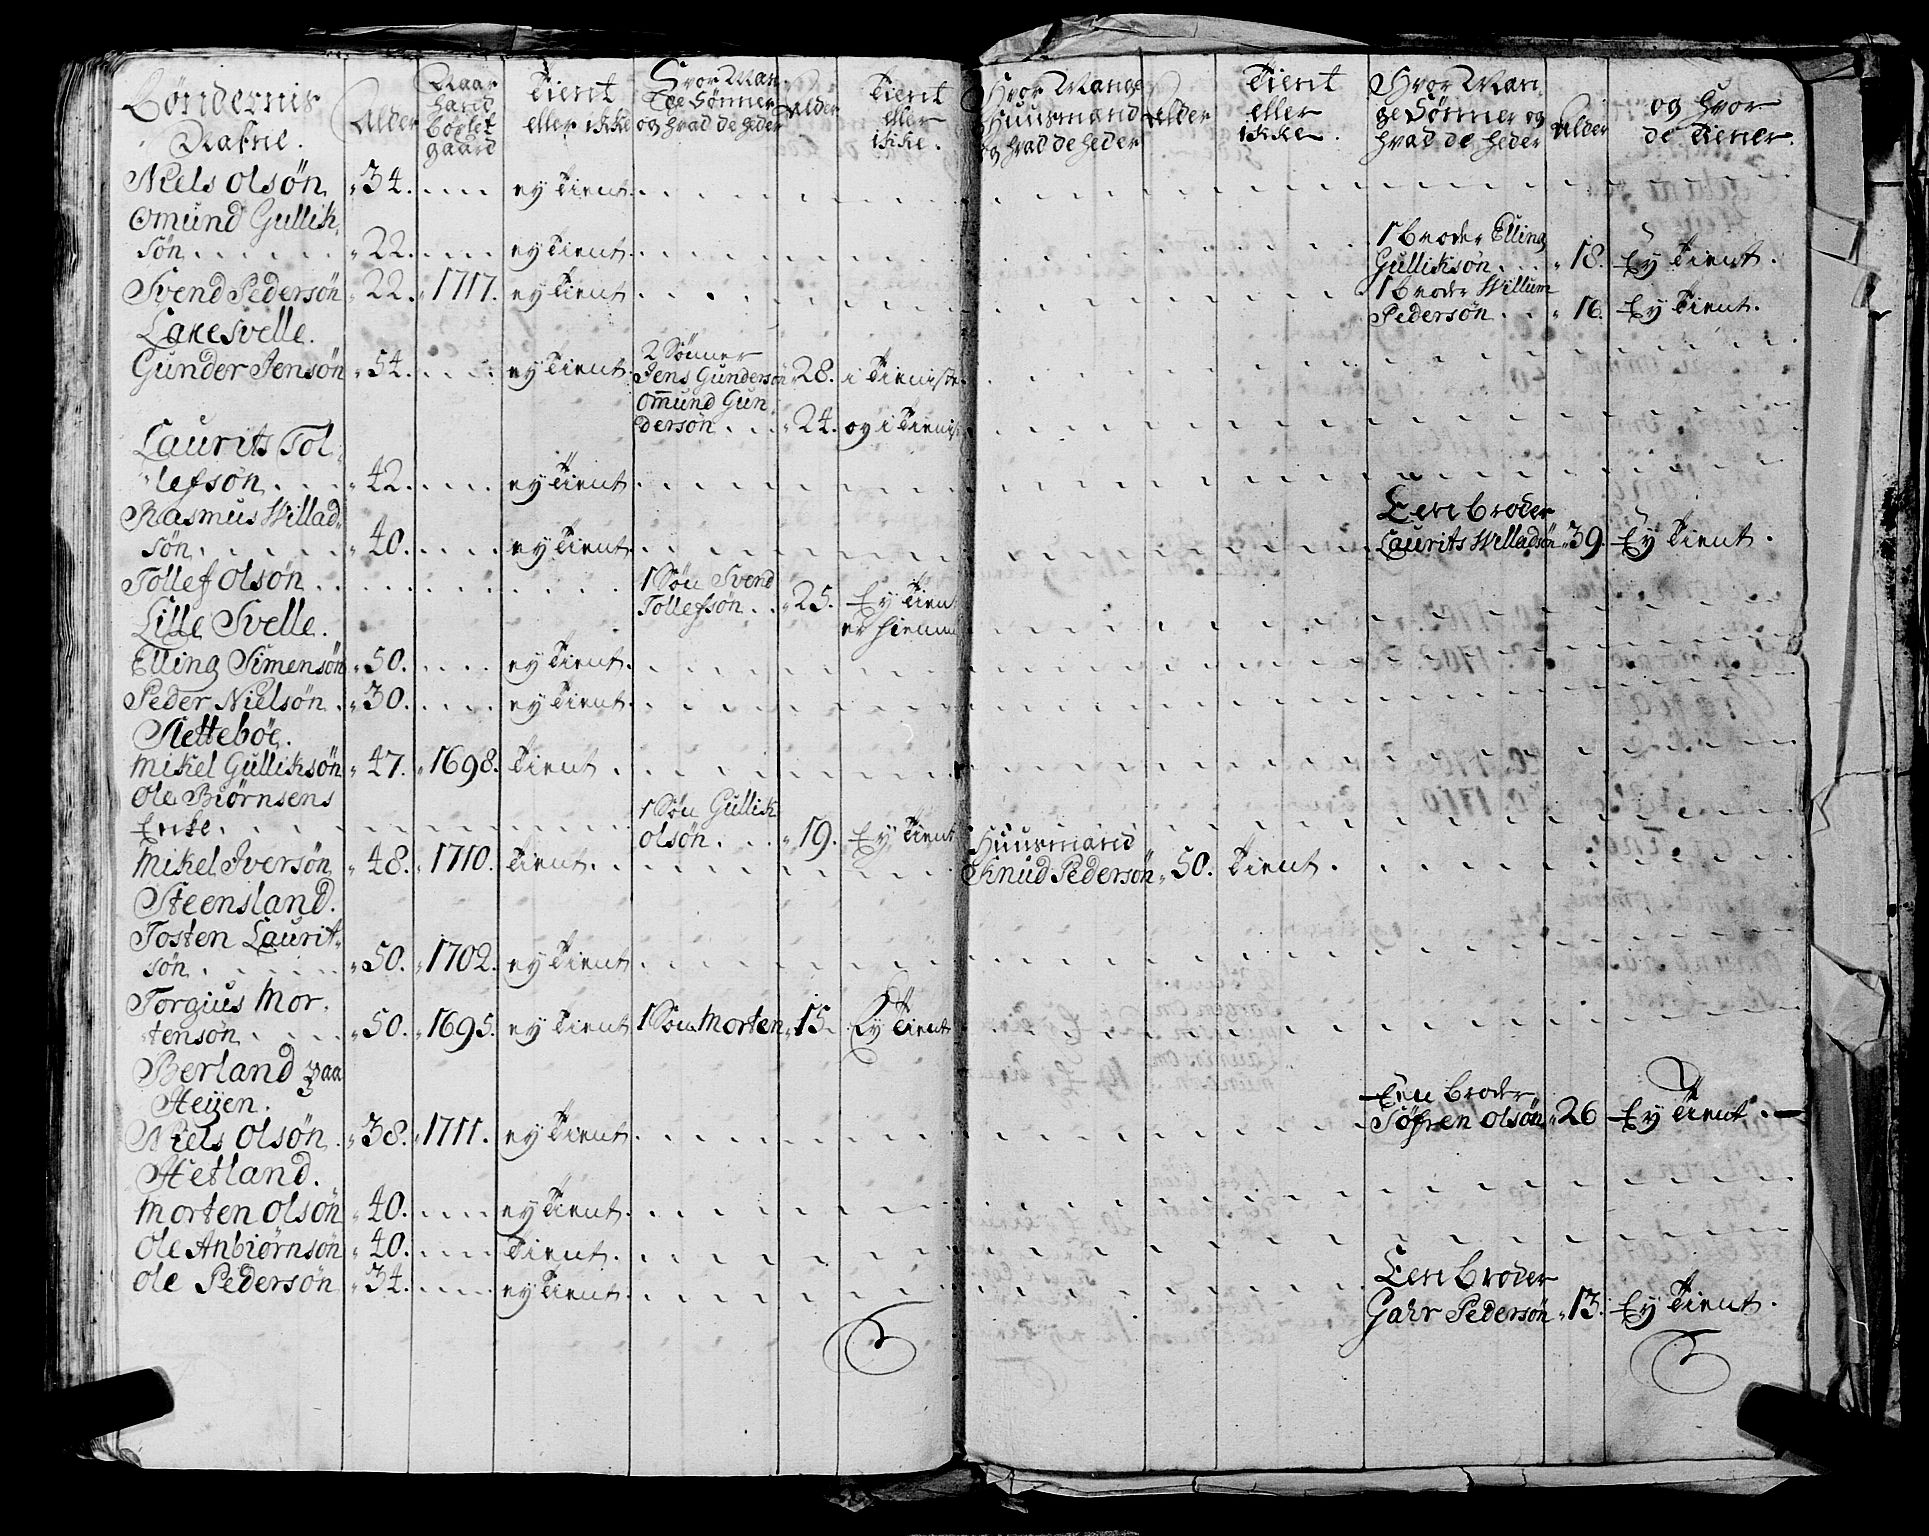 Böndernis Nafne. Alder Naar hand böxlet gaard Tient eller ikke Hvor Mange Sönner og hvad de heder Alder Tient eller ikke. Hvor Mange Huusmænd og hvad de heder Alder Tient eller ikke. Hvor Mange Sönner og hvad de heder Alder og hvor de tiener.
Niels Olsøn 34. ey Tient
Omund Gullik-
søn 22. ey Tient 1 broder Elling
Gulliksøn 18. Ey Tient.
Svend Pedersøn 22. 1717. ey Tient 1 broder Willum
Pedersøn 16. Ey Tient.
Lare Svelle.
Gunder Jensøn 54. ey Tient 2 Sönner
Jens Gundersøn 28. i Tieniste.
Omund Gun-
dersøn 24. og i Tienist
Laurits Tol-
lefsøn 42. ey Tient
Rasmus Willad-
søn 40. ey Tient Een broder
Laurits Willadsøn 39. Ey Tient.
Tollef Olsøn 1 Søn Svend
Tollefsøn 25. Ey Tient
er hiemme
Lille Svelle.
Elling Simensøn 50. ey Tient
Peder Nielsøn 30. ey Tient
Slettebøe.
Mikel Gulliksøn 47. 1698. Tient
Ole Biørnsens
Enke. 1 Søn Gullik
Olsøn 19. Ey Tient
Mikel Iversøn 48. 1710. Tient. Huusmand
Knud Pedersøn 50. Tient.
Steensland.
Tosten Laurit-
søn 50. 1702. ey Tient
Torgius Mor-
tensøn 50. 1695. ey Tient 1 Søn Morten 15. Ey Tient
Berland paa
Heyen.
Niels Olsøn 38. 1711. ey Tient Een broder
Söfren Olsøn 26 Ey Tient.
Hetland.
Morten Olsøn 40. ey Tient
Ole Anbiørnsøn 40. Tient.
Ole Pedersøn 34. ey Tient Een broder
Gahr Pedersøn 13. Ey Tient.